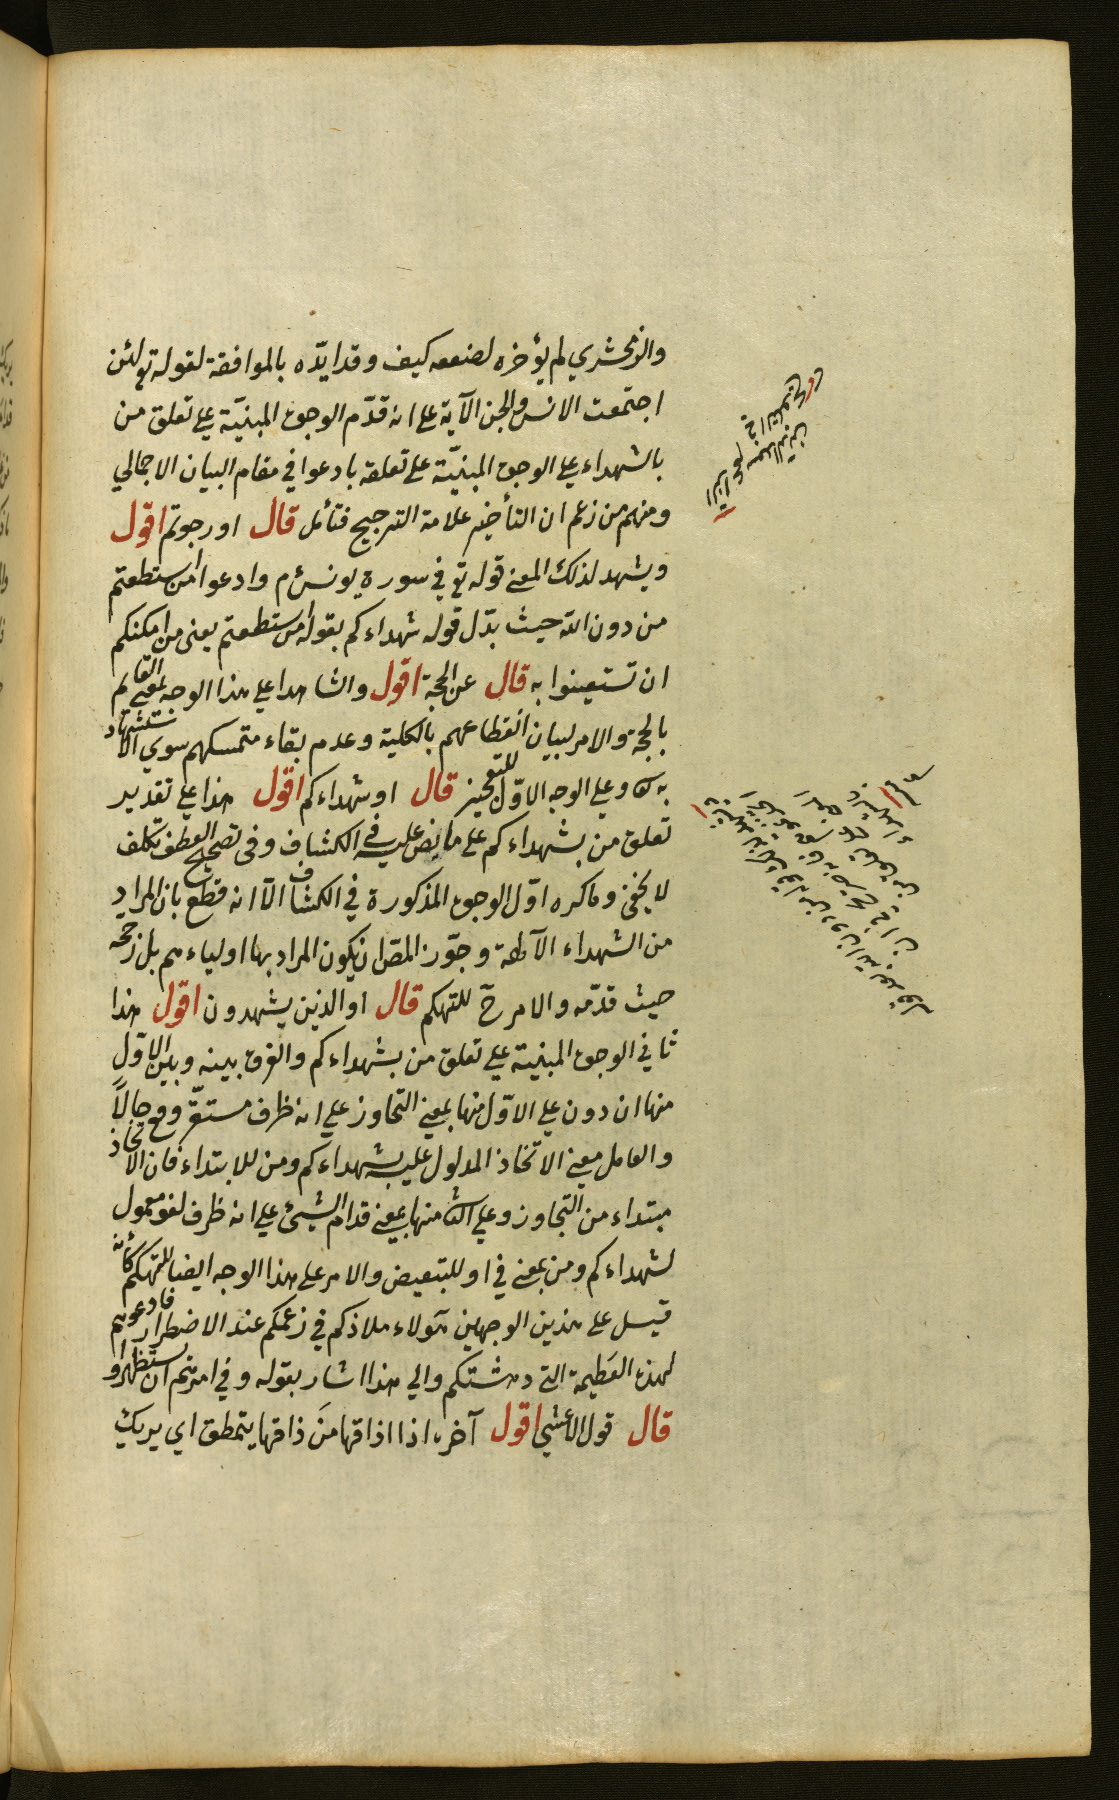 والزمخشري لم يؤخره لضعفه كيف وقد ايّده بالموافقة لقوله تع لئن
اجتمعت الانس والجن الآية على انه قدّم الوجوه المبنيّة على تعلق من
بالشهداء على الوجوه المبنيّة على تعلقه بادعوا في مقام البيان الاجمالي
ومنهم من زعم ان التأخير علامة الترجيح فتأمل قال او رجوتم اقول
ويشهد لذلك المعنى قوله تع في سورة يونس م وادعوا من استطعتم
من دون الله حيث بدّل قوله شهداءكم بقوله من استطعتم يعنى من امكنكم
ان تستعينوا به قال عن الحجة اقول والشاهد على هذا الوجه بمعنى القائم
بالحجة والامر لبيان انقطاعهم بالكلية وعدم بقاء متمسكهم سوى الاستشهاد
به تع وعلى الوجه الاوّل للتعجيز قال او شهداءكم اقول هذا على تقدير
تعلق من بشهداءكم على ما نص عليه في الكشاف وفى تصحيح العطف تكلف
لا يخفى وما كره اوّل الوجوه المذكورة في الكشاف الا انه قطع بان المراد
من الشهداء الآلهة وجوّز المص ان يكون المراد بها اولياءهم بل رجحه
حيث قدّمه والامر ح للتهكم قال او الذين يشهدون اقول هذا
ثاني الوجوه المبنيّة على تعلق من بشهداءكم والفرق بينه وبين الاوّل
منها ان دون على الاوّل منها بمعنى التجاوز على انه ظرف مستقرّ وقع حالاً
والعامل معنى الاتخاذ المدلول عليه بشهداءكم ومن للابتداء فان الاتخاذ
مبتداء من التجاوز وعلى الثاني منها بمعنى قدام الشيئ على انه ظرف لغو معمول
لشهداءكم ومن بمعنى في او للتبعيض والامر على هذا الوجه ايضا للتهكم كأنه
قيل على هذين الوجهين هؤلاء ملاذكم في زعمكم عند الاضطرار فادعوهم
لهذه العظيمة التى دهشتكم والى هذا اشار بقوله وفي امرهم ان يستظهروا
قال قول الاعشى اقول آخره اذا ذاقها مَن ذاقها يتمطق اي يريك